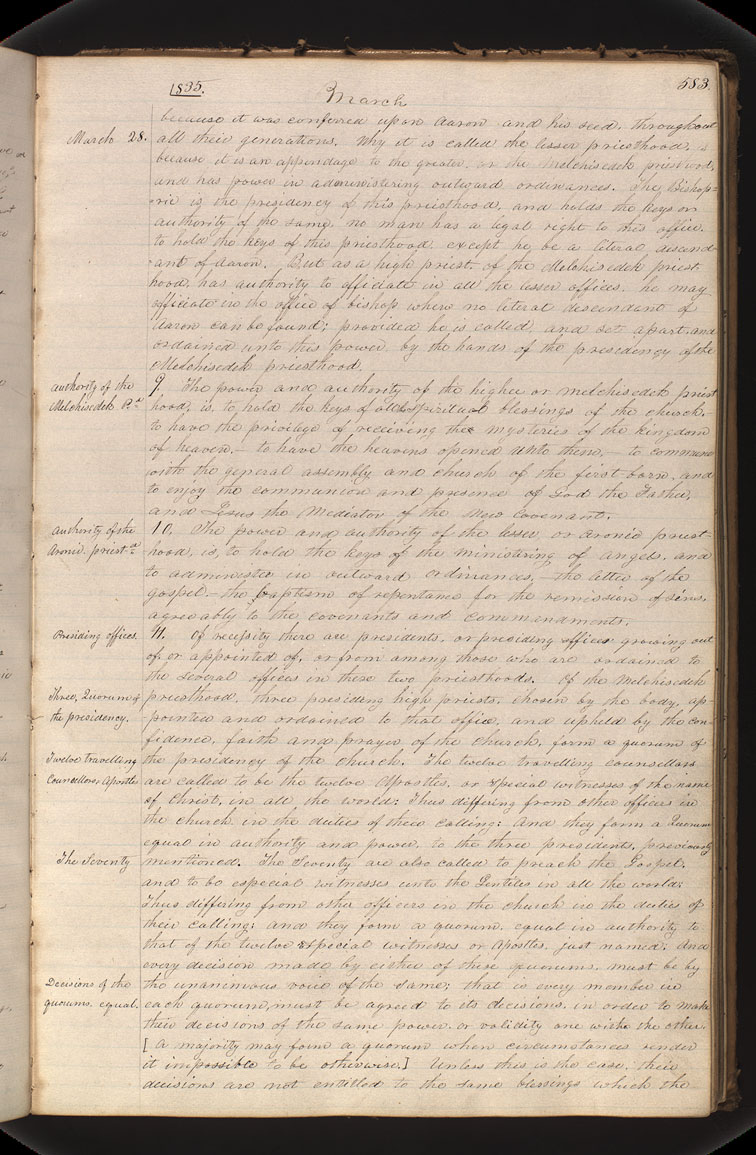 1835.
March
583
because it was conferred upon Aaron and his seed, throughout
March 28.
all their generations. Why it is called the lesser priesthood, is
because it is an appendage to the greater, or the Melchisedek priesthood,
and has power in administering outward ordinances. The Bishop=
=ric is the presidency of this priesthood, and holds the keys or
authority of the same. no man has a legal right to this office,
to hold the keys of this priesthood, except he be a literal descend-
-ant of Aaron. But as a high priest, of the Melchisedek priest
hood, has authority to officiate in all the lesser offices, he may
officiate in the office of bishop when no literal descendant of
Aaron can be found; provided he is called, and set apart, and
ordained unto this power by the hands of the presidency of the
Melchisedek priesthood.
authority of the
Melchisedek Pd
9 The power and authority of the higher or melchisedek priest
hood, is, to hold the keys of all the spiritual blessings of the church,—
to have the privilege of receiving the mysteries of the kingdom
of heaven,— to have the heavens opened unto them,— to commune
with the general assembly and church of the first born, and
to enjoy the communion and presence of God the Father,
and Jesus the Mediator of the New Covenant.
authority of the
Aronic. priestd
10. The power and authority of the lesser, or Aronic priest-
hood, is, to hold the keys of the ministering of angels, and
to administer in outward ordinances,— the letter of the
gospel,— the baptism of repentance for the remission of sins,
agreeably to the covenants and commandments.
Presiding offices.
11. Of necessity there are presidents, or presiding offices growing out
of, or appointed of, or from among those who are ordained to
the several offices in these two priesthoods. Of the Melchisedek
Three, Quorum of
the presidency.
priesthood, three presiding high priests, chosen by the body, ap
pointed and ordained to that office, and upheld by the con-
fidence, faith and prayer of the church, form a quorum of
Twelve travelling
Councellors, Apostles
the presidency of the church. The twelve travelling counsellors
are called to be the twelve Apostles, or special witnesses of the name
of Christ, in all the world: Thus differing from other officers in
the church in the duties of their calling: And they form a Quorum
equal in authority and power, to the three presidents, previously
The Seventy
mentioned. The Seventy are also called to preach the Gospel,
and to be especial witnesses unto the Gentiles in all the world:
Thus differing from other officers in the church in the duties of
their calling: and they form a quorum, equal in authority to
that of the twelve special witnesses or apostles, just named: And
every decision made by either of these quorums, must be by
Decisions of the
quorums. equal.
the unanimous voice of the same; that is every member in
each quorum, must be agreed to its decisions, in order to make
their decisions of the same power, or validity one with the other.
[A majority may form a quorum when circumstances render
it impossible to be otherwise.] Unless this is the case, their
decisions are not entitled to the same blessings which the